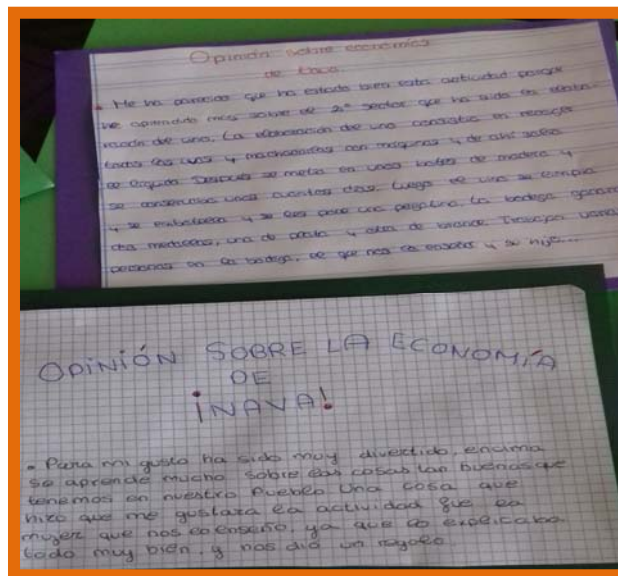 Opinión sobre economía
de Coca
• Me ha parecido que ha estado bien esta actividad porque
he aprendido más sobre el 2º sector que ha sido la elabo-
ración del vino. La elaboración del vino consistía en recoger
todas las uvas y machacarlas con máquinas y de ahí salía
el líquido. Después se metía en unos botes de madera y
se conservaba unos cuantos días. Luego el vino se limpia
y se embotella y se les pone una pegatina. La bodega ganaron
dos medallas, una de plata y otra de bronce. Trabajan varias
personas en la bodega, el que nos la enseñó y su hijo...
OPINIÓN SOBRE LA ECONOMÍA
DE
¡NAVA!
• Para mi gusto ha sido muy divertido, encima
se aprende mucho sobre las cosas tan buenas que
tenemos en nuestro pueblo. Una cosa que
hizo que me gustara la actividad fue la
mujer que nos lo enseñó, ya que lo explicaba
todo muy bien, y nos dió un regalo.